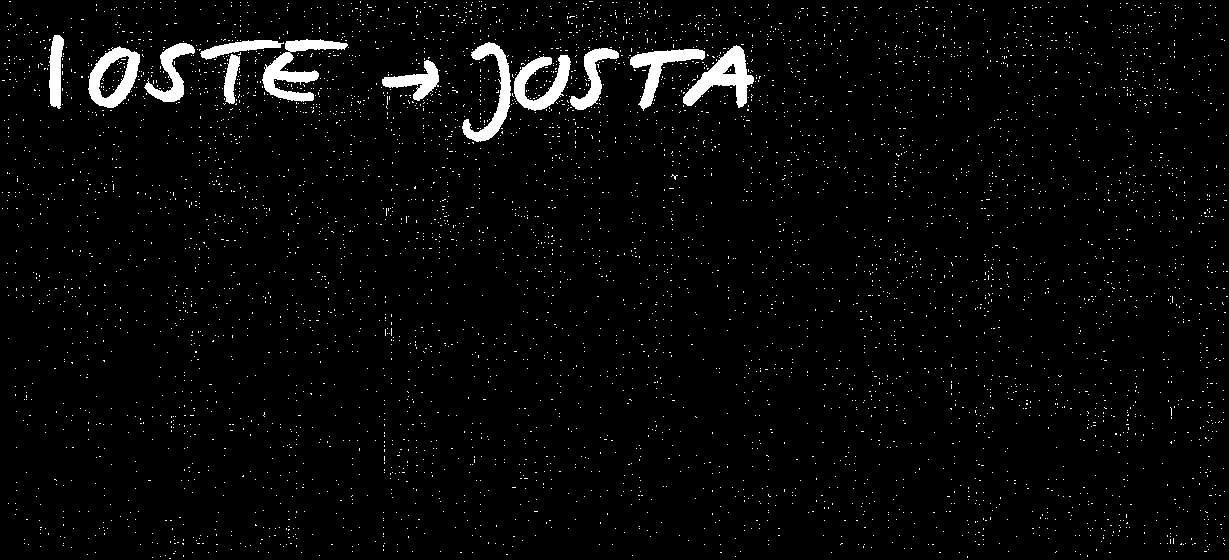 IOSTE → JOSTA